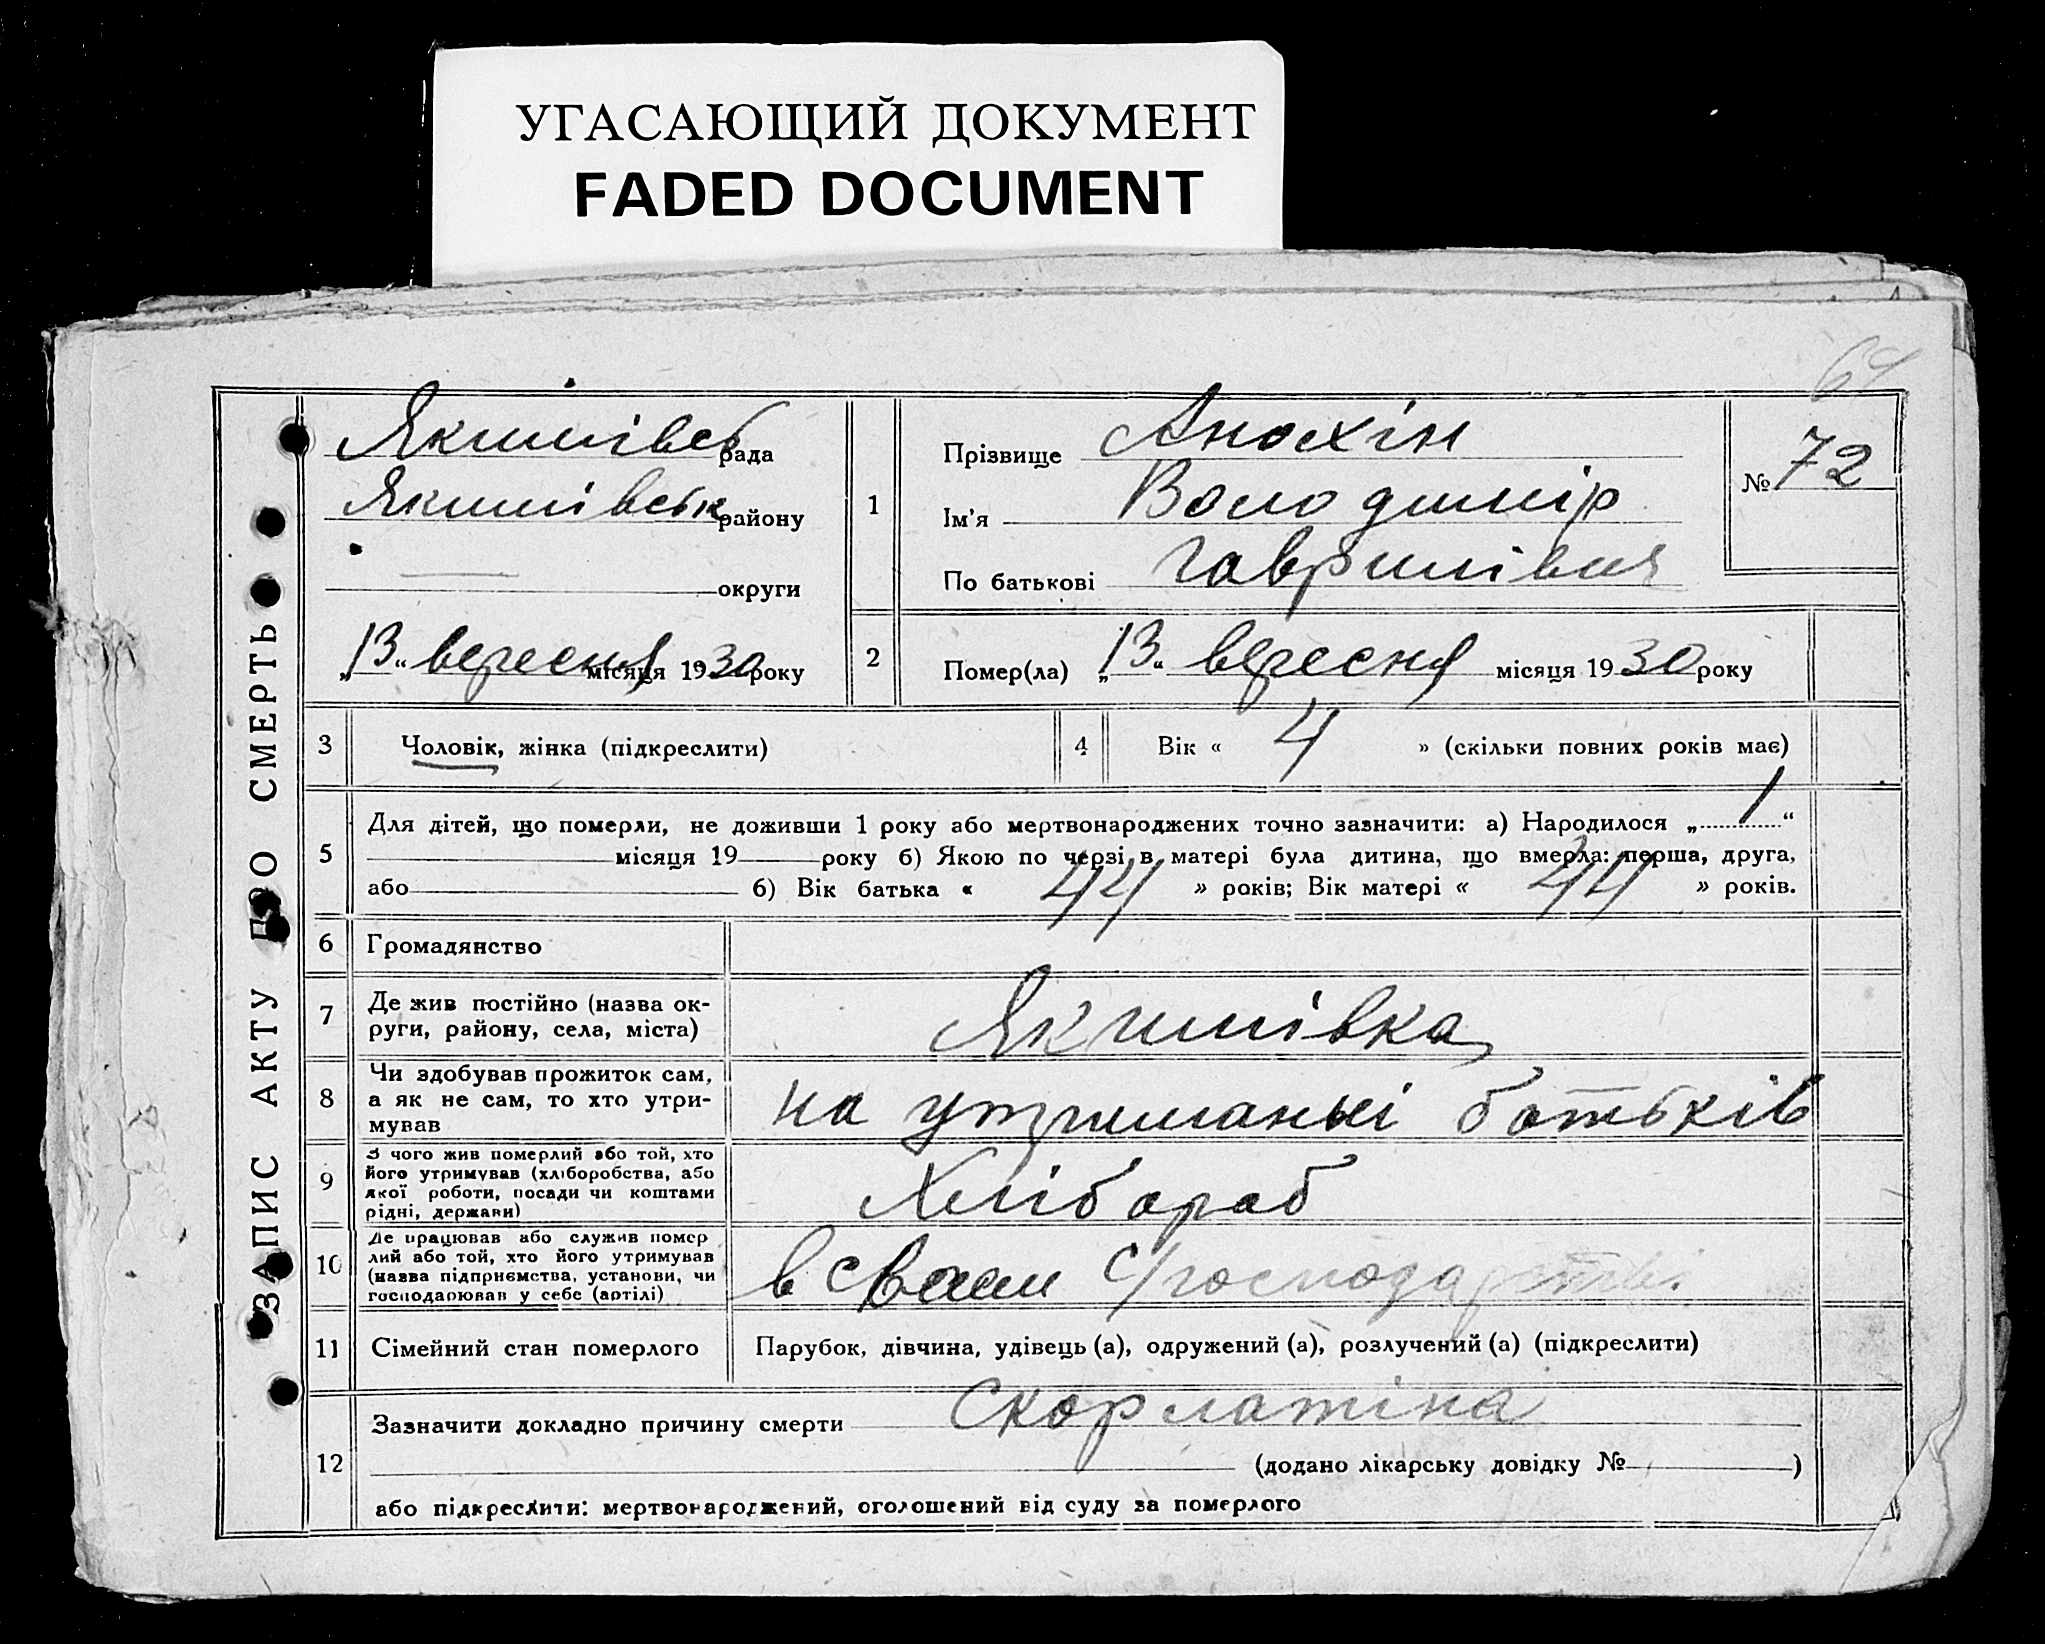 УГАСАЮЩИЙ ДОКУМЕНТ
FADED DOCUMENT
64
ЗАПИС АКТУ ПРО СМЕРТЬ
Якимівськ рада
Якимівськ району
округи
„13“ вересня місяця 1930 року
1
Прізвище Анохін
Ім'я Володимір
По батькові Гаврилівич
№ 72
2
Помер(ла) „13“ вересня місяця 1930 року
3 Чоловік, жінка (підкреслити)
4 Вік « 4 » (скільки повних років має)
5 Для дітей, що померли, не доживши 1 року або мертвонароджених точно зазначити: а) Народилося „ “
місяця 19 року б) Якою по черзі в матері була дитина, що вмерла: перша, друга,
або б) Вік батька « 44 » років; Вік матері « 44 » років.
6 Громадянство
7 Де жив постійно (назва ок-
руги, району, села, міста)
Якимівка
8 Чи здобував прожиток сам,
а як не сам, то хто утри-
мував
на утриманьі батьків
9 З чого жив померлий або той, хто
його утримував (хліборобства, або
якої роботи, посади чи коштами
рідні, держави)
Хлібороб
10 Де працював або служив помер
лий або той, хто його утримував
(назва підприємства, установи, чи
господарював у себе (артілі)
в своем с/господарстві.
11 Сімейний стан померлого
Парубок, дівчина, удівець (а), одружений (а), розлучений (а) (підкреслити)
12 Зазначити докладно причину смерти Скорлатіна
(додано лікарську довідку № )
або підкреслити: мертвонароджений, оголошений від суду за померлого